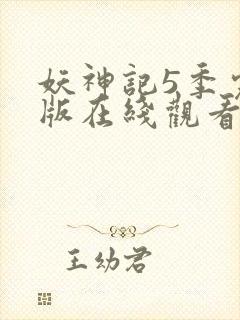 妖神記5季
版在綫觀看
王幼君